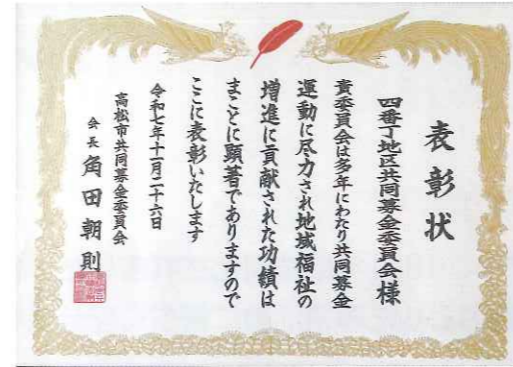 表彰状
四番丁地区共同募金委員会様
貴委員会は多年にわたり共同募金
運動に尽力され地域福祉の
増進に貢献された功績は
まことに顕著でありますので
ここに表彰いたします
令和七年十一月二十六日
高松市共同募金委員会
会長 角田朝則